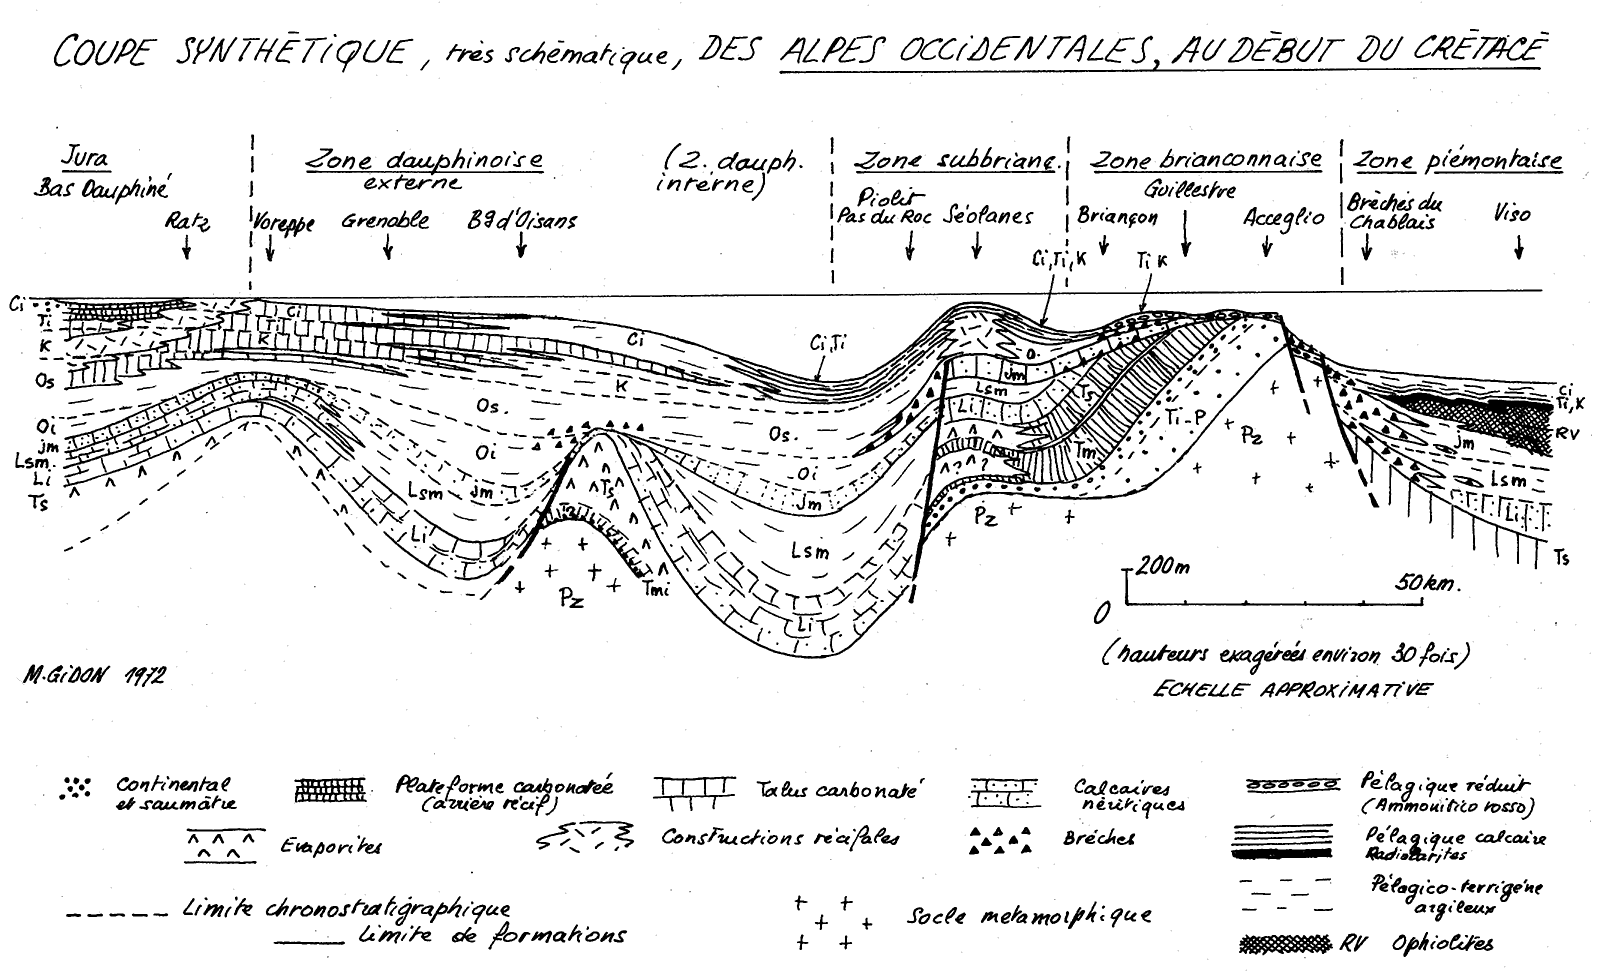 COUPE SYNTHÉTIQUE, très schématique, DES ALPES OCCIDENTALES, AU DÉBUT DU CRÉTACÉ
Jura
Bas Dauphiné
Ratz
Zone dauphinoise
externe
Voreppe Grenoble Bg d'Oisans
(Z. dauph.
interne)
Zone subbrianç.
Piolit
Pas du Roc Séolanes
Zone brianconnaise
Guillestre
Briançon Acceglio
Zone piémontaise
Brèches du
Chablais
Viso
Ci,Ti,K
Ti K
Ci
Ti
K
Os
Oi
Jm
Lsm
Li
Ts
Ci
Ti
K
Ci
K
Os.
Oi
Lsm
Jm
Li
Ts
Pz
Tmi
Ci,Ti
Os.
Oi
Jm
Lsm
Li
O
Jm
Lsm
Li
?
?
Pz
Ts
Tm
Ti-P
Pz
Ci
Ti,K
RV
Jm
Lsm
Li
Ts
200m
0
50km.
(hauteurs exagérées environ 30 fois)
ECHELLE APPROXIMATIVE
M.GIDON 1972
Continental
et saumâtre
Plateforme carbonatée
(arrière récif)
Talus carbonaté
Calcaires
néritiques
Pélagique réduit
(Ammonitico rosso)
Evaporites
Constructions récifales
Brèches
Pélagique calcaire
Radiolarites
Pélagico-terrigène
argileux
Limite chronostratigraphique
Limite de formations
Socle métamorphique
RV Ophiolites